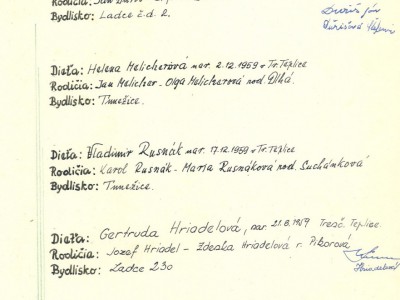 Bydlisko: Ladce č.d. 2.
Dieťa: Helena Melicherová nar. 2.12.1959 v Tr. Teplice
Rodičia: Ján Melicher - Oľga Melicherová rod. Dlhá.
Bydlisko: Tunežice.
Dieťa: Vladimír Rusnák nar. 17.12.1959 v Tr. Teplice
Rodičia: Karol Rusnák - Mária Rusnáková rod. Suchánková
Bydlisko: Tunežice.
Dieťa: Gertruda Hriadelová, nar. 21.8.1959 Trenč. Teplice.
Rodičia: Jozef Hriadel - Zdenka Hriadelová r. Pikorová
Bydlisko: Ladce 230